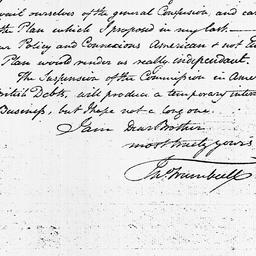 avail ourselves of the general Confusion, and car
the Plan which I proposed in my last—
our Policy and Connexions American & not Eu
Plan would render us really independant.
The Suspension of the Commission in Amer
British Debts, will produce a temporary inter
Business, but I hope not a long one.
I am Dear Brother
most truly yours
Jno Trumbull